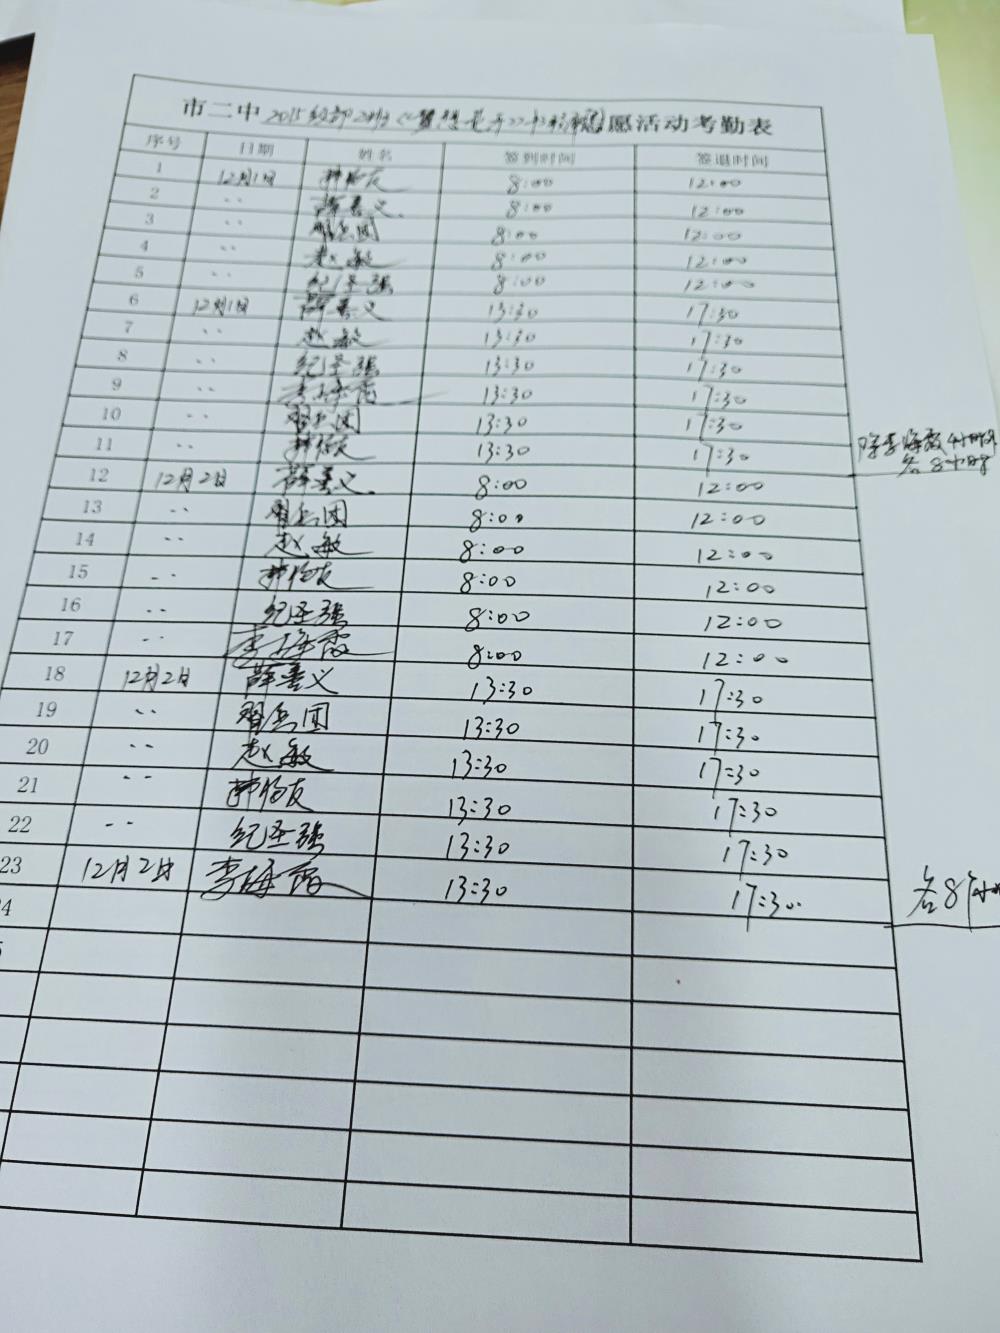 市二中2015级部2班 愿活动考勤表
序号 日期 姓名 签到时间 签退时间
1 12月1日 8:00 12:00
2 〃 薛善义 8:00 12:00
3 〃 8:00 12:00
4 〃 赵敏 8:00 12:00
5 〃 纪圣强 8:00 12:00
6 12月1日 薛善义 13:30 17:30
7 〃 赵敏 13:30 17:30
8 〃 纪圣强 13:30 17:30
9 〃 李海霞 13:30 17:30
10 〃 13:30 17:30
11 〃 13:30 17:30
除李海霞4小时外
各8小时
12 12月2日 薛善义 8:00 12:00
13 〃 8:00 12:00
14 〃 赵敏 8:00 12:00
15 〃 8:00 12:00
16 〃 纪圣强 8:00 12:00
17 〃 李海霞 8:00 12:00
18 12月2日 薛善义 13:30 17:30
19 〃 13:30 17:30
20 〃 赵敏 13:30 17:30
21 〃 13:30 17:30
22 〃 纪圣强 13:30 17:30
23 12月2日 李海霞 13:30 17:30
各8小时